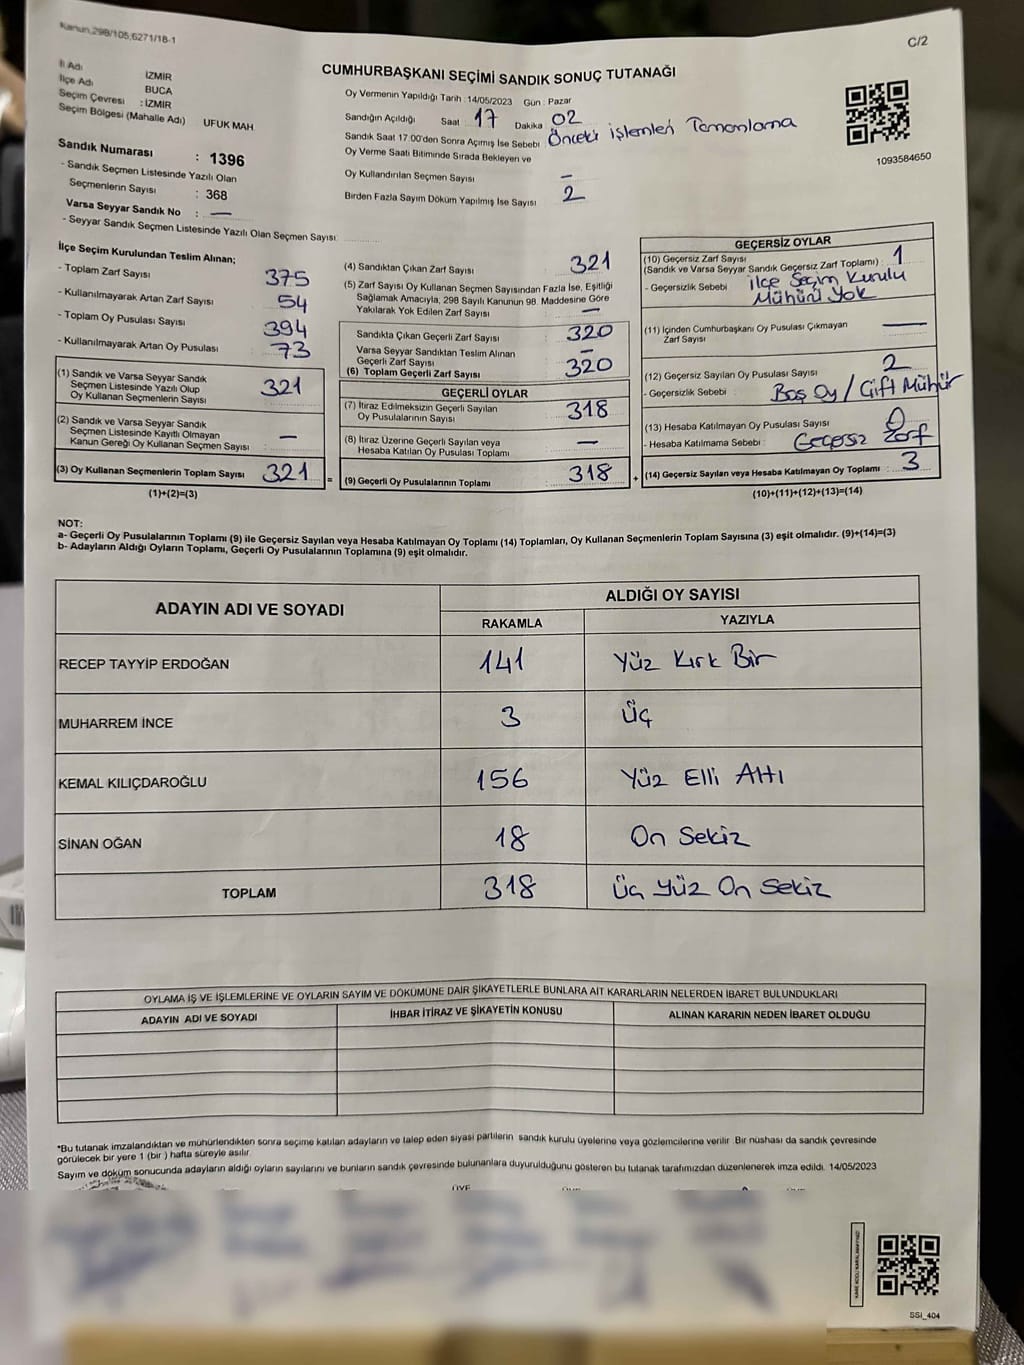 Kanun,298/105;6271/18-1
C/2
İl Adı İZMİR
İlçe Adı BUCA
Seçim Çevresi : İZMİR
Seçim Bölgesi (Mahalle Adı) UFUK MAH
CUMHURBAŞKANI SEÇİMİ SANDIK SONUÇ TUTANAĞI
Oy Vermenin Yapıldığı Tarih : 14/05/2023 Gün : Pazar
Sandığın Açıldığı Saat 17 Dakika 02
Sandık Saat 17:00'den Sonra Açımış İse Sebebi Önceki işlemleri Tamamlama
Oy Verme Saati Bitiminde Sırada Bekleyen ve
Oy Kullandırılan Seçmen Sayısı –
Birden Fazla Sayım Döküm Yapılmış İse Sayısı 2
1093584650
Sandık Numarası : 1396
- Sandık Seçmen Listesinde Yazılı Olan
Seçmenlerin Sayısı : 368
Varsa Seyyar Sandık No : —
- Seyyar Sandık Seçmen Listesinde Yazılı Olan Seçmen Sayısı:
İlçe Seçim Kurulundan Teslim Alınan;
- Toplam Zarf Sayısı 375
- Kullanılmayarak Artan Zarf Sayısı 54
- Toplam Oy Pusulası Sayısı 394
- Kullanılmayarak Artan Oy Pusulası 73
(1) Sandık ve Varsa Seyyar Sandık
Seçmen Listesinde Yazılı Olup
Oy Kullanan Seçmenlerin Sayısı 321
(2) Sandık ve Varsa Seyyar Sandık
Seçmen Listesinde Kayıtlı Olmayan
Kanun Gereği Oy Kullanan Seçmen Sayısı –
(3) Oy Kullanan Seçmenlerin Toplam Sayısı 321 =
(1)+(2)=(3)
(4) Sandıktan Çıkan Zarf Sayısı 321
(5) Zarf Sayısı Oy Kullanan Seçmen Sayısından Fazla İse, Eşitliği
Sağlamak Amacıyla, 298 Sayılı Kanunun 98. Maddesine Göre
Yakılarak Yok Edilen Zarf Sayısı –
Sandıkta Çıkan Geçerli Zarf Sayısı 320
Varsa Seyyar Sandıktan Teslim Alınan
Geçerli Zarf Sayısı –
(6) Toplam Geçerli Zarf Sayısı 320
GEÇERLİ OYLAR
(7) İtiraz Edilmeksizin Geçerli Sayılan
Oy Pusulalarının Sayısı 318
(8) İtiraz Üzerine Geçerli Sayılan veya
Hesaba Katılan Oy Pusulası Toplamı –
(9) Geçerli Oy Pusulalarının Toplamı 318 +
GEÇERSİZ OYLAR
(10) Geçersiz Zarf Sayısı
(Sandık ve Varsa Seyyar Sandık Geçersiz Zarf Toplamı) : 1
- Geçersizlik Sebebi ilçe Seçim Kurulu
Mühürü Yok
(11) İçinden Cumhurbaşkanı Oy Pusulası Çıkmayan
Zarf Sayısı —
(12) Geçersiz Sayılan Oy Pusulası Sayısı 2
- Geçersizlik Sebebi : Boş Oy / Çift Mühür
(13) Hesaba Katılmayan Oy Pusulası Sayısı 0
- Hesaba Katılmama Sebebi : Geçersiz Zarf
(14) Geçersiz Sayılan veya Hesaba Katılmayan Oy Toplamı : 3
(10)+(11)+(12)+(13)=(14)
NOT:
a- Geçerli Oy Pusulalarının Toplamı (9) ile Geçersiz Sayılan veya Hesaba Katılmayan Oy Toplamı (14) Toplamları, Oy Kullanan Seçmenlerin Toplam Sayısına (3) eşit olmalıdır. (9)+(14)=(3)
b- Adayların Aldığı Oyların Toplamı, Geçerli Oy Pusulalarının Toplamına (9) eşit olmalıdır.
ADAYIN ADI VE SOYADI ALDIĞI OY SAYISI
RAKAMLA YAZIYLA
RECEP TAYYİP ERDOĞAN 141 Yüz Kırk Bir
MUHARREM İNCE 3 Üç
KEMAL KILIÇDAROĞLU 156 Yüz Elli Altı
SİNAN OĞAN 18 On Sekiz
TOPLAM 318 Üç Yüz On Sekiz
OYLAMA İŞ VE İŞLEMLERİNE VE OYLARIN SAYIM VE DÖKÜMÜNE DAİR ŞİKAYETLERLE BUNLARA AİT KARARLARIN NELERDEN İBARET BULUNDUKLARI
ADAYIN ADI VE SOYADI İHBAR İTİRAZ VE ŞİKAYETİN KONUSU ALINAN KARARIN NEDEN İBARET OLDUĞU
*Bu tutanak imzalandıktan ve mühürlendikten sonra seçime katılan adayların ve talep eden siyasi partilerin sandık kurulu üyelerine veya gözlemcilerine verilir. Bir nüshası da sandık çevresinde
görülecek bir yere 1 (bir ) hafta süreyle asılır.
Sayım ve döküm sonucunda adayların aldığı oyların sayılarını ve bunların sandık çevresinde bulunanlara duyurulduğunu gösteren bu tutanak tarafımızdan düzenlenerek imza edildi. 14/05/2023
ÜYE
SSİ_404